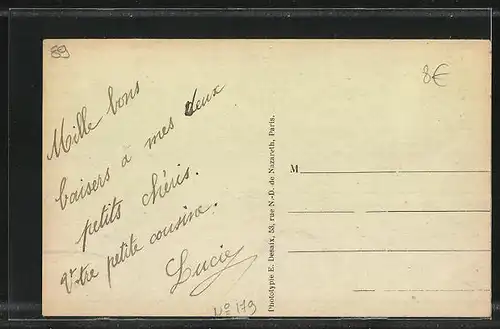 89
8€
Mille bons
baisers à mes deux
petits chéris.
Votre petite cousine.
Lucie
No 179
Phototypie E. Desaix, 53, rue N.-D. de Nazareth, Paris.
M